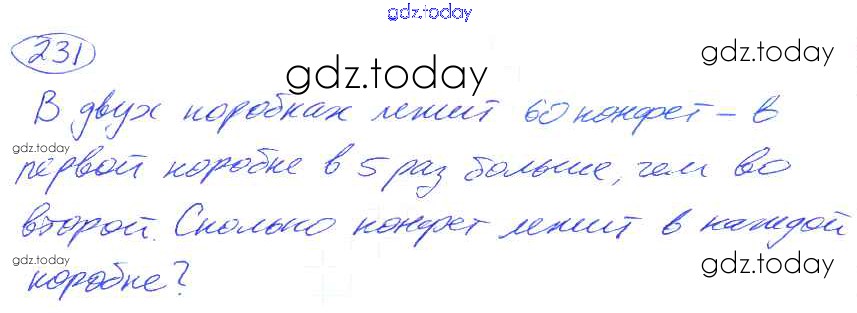 gdz.today
231
gdz.today
gdz.today
В двух коробках лежит 60 конфет – в
gdz.today
первой коробке в 5 раз больше, чем во
второй. Сколько конфет лежит в каждой
gdz.today
коробке?
gdz.today